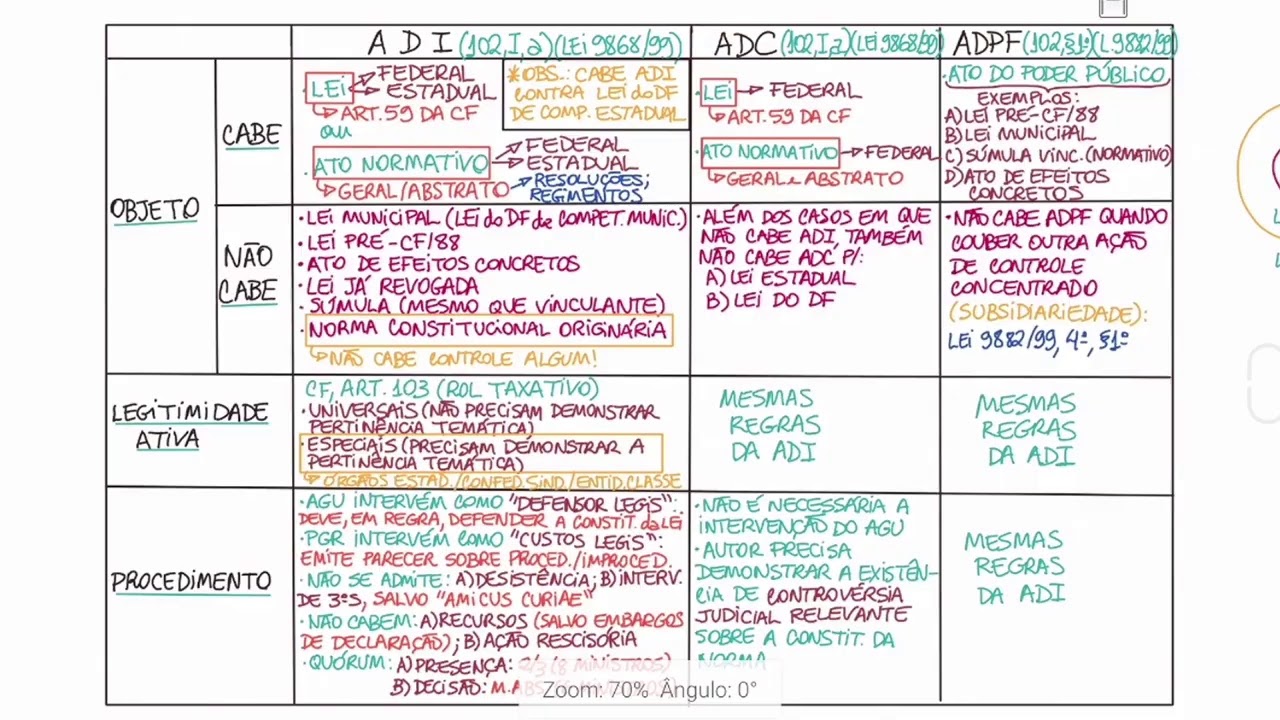 ADI (102,I,a)(LEI 9868/99)
ADC (102,I,a)(LEI 9868/99)
ADPF (102,§1º)(L.9882/99)
OBJETO
CABE
· LEI → FEDERAL
→ ESTADUAL
↳ ART. 59 DA CF
OU
· ATO NORMATIVO → FEDERAL
→ ESTADUAL
↳ GERAL/ABSTRATO → RESOLUÇÕES;
REGIMENTOS
*OBS.: CABE ADI
CONTRA LEI do DF
DE COMP. ESTADUAL
· LEI → FEDERAL
↳ ART. 59 DA CF
· ATO NORMATIVO → FEDERAL
↳ GERAL e ABSTRATO
· ATO DO PODER PÚBLICO
EXEMPLOS:
A) LEI PRÉ-CF/88
B) LEI MUNICIPAL
C) SÚMULA VINC. (NORMATIVO)
D) ATO DE EFEITOS
CONCRETOS
NÃO
CABE
· LEI MUNICIPAL (LEI do DF de COMPET. MUNIC.)
· LEI PRÉ-CF/88
· ATO DE EFEITOS CONCRETOS
· LEI JÁ REVOGADA
· SÚMULA (MESMO QUE VINCULANTE)
· NORMA CONSTITUCIONAL ORIGINÁRIA
↳ NÃO CABE CONTROLE ALGUM!
· ALÉM DOS CASOS EM QUE
NÃO CABE ADI, TAMBÉM
NÃO CABE ADC P/:
A) LEI ESTADUAL
B) LEI DO DF
· NÃO CABE ADPF QUANDO
COUBER OUTRA AÇÃO
DE CONTROLE
CONCENTRADO
(SUBSIDIARIEDADE):
LEI 9882/99, 4º, §1º
LEGITIMIDADE
ATIVA
CF, ART. 103 (ROL TAXATIVO)
· UNIVERSAIS (NÃO PRECISAM DEMONSTRAR
PERTINÊNCIA TEMÁTICA)
· ESPECIAIS (PRECISAM DEMONSTRAR A
PERTINÊNCIA TEMÁTICA)
↳ ÓRGÃOS ESTAD./CONFED. SIND./ENTID. CLASSE
MESMAS
REGRAS
DA ADI
MESMAS
REGRAS
DA ADI
PROCEDIMENTO
· AGU INTERVÉM COMO "DEFENSOR LEGIS":
DEVE, EM REGRA, DEFENDER A CONSTIT. da LEI
· PGR INTERVÉM COMO "CUSTOS LEGIS":
EMITE PARECER SOBRE PROCED./IMPROCED.
· NÃO SE ADMITE: A) DESISTÊNCIA; B) INTERV.
DE 3ºS, SALVO "AMICUS CURIAE"
· NÃO CABEM: A) RECURSOS (SALVO EMBARGOS
DE DECLARAÇÃO); B) AÇÃO RESCISÓRIA
· QUÓRUM: A) PRESENÇA: 2/3 (8 MINISTROS)
B) DECISÃO: M. ABS.
· NÃO É NECESSÁRIA A
INTERVENÇÃO DO AGU
· AUTOR PRECISA
DEMONSTRAR A EXISTÊN-
CIA DE CONTROVÉRSIA
JUDICIAL RELEVANTE
SOBRE A CONSTIT. DA
NORMA
MESMAS
REGRAS
DA ADI
Zoom: 70% Ângulo: 0°